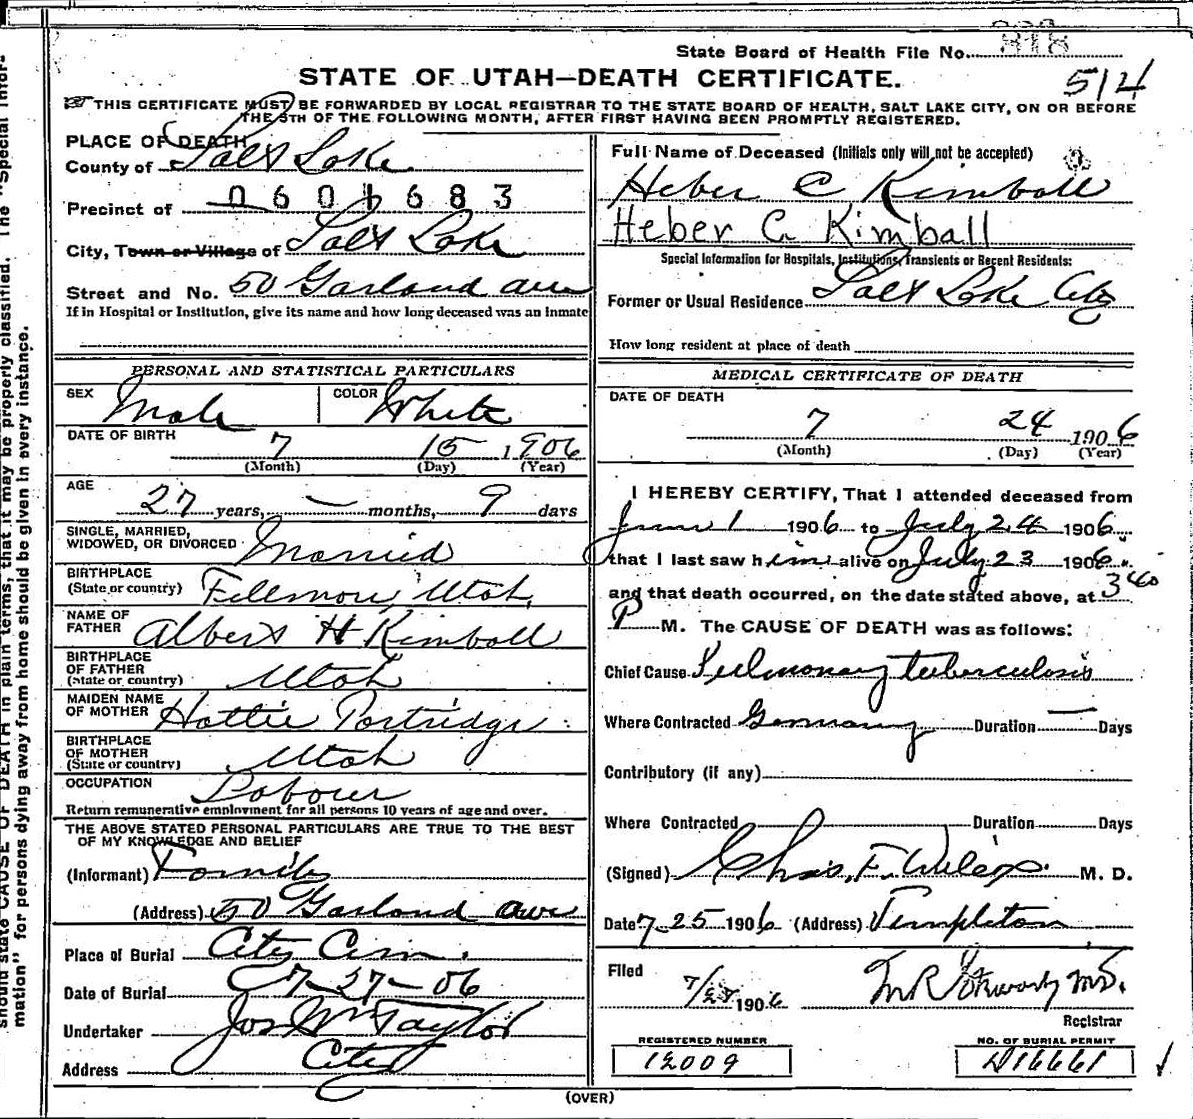 State Board of Health File No. 818
514
STATE OF UTAH—DEATH CERTIFICATE.
THIS CERTIFICATE MUST BE FORWARDED BY LOCAL REGISTRAR TO THE STATE BOARD OF HEALTH, SALT LAKE CITY, ON OR BEFORE
THE 5TH OF THE FOLLOWING MONTH, AFTER FIRST HAVING BEEN PROMPTLY REGISTERED.
PLACE OF DEATH
County of Salt Lake
Precinct of 0601683
City, Town or Village of Salt Lake
Street and No. 50 Garland ave
If in Hospital or Institution, give its name and how long deceased was an inmate
PERSONAL AND STATISTICAL PARTICULARS
SEX Male COLOR White
DATE OF BIRTH 7 15 1906
(Month) (Day) (Year)
AGE
27 years, — months, 9 days
SINGLE, MARRIED,
WIDOWED, OR DIVORCED Married
BIRTHPLACE
(State or country) Fillmore, Utah,
NAME OF
FATHER Albert H Kimball
BIRTHPLACE
OF FATHER
(State or country) Utah
MAIDEN NAME
OF MOTHER Hattie Partridge
BIRTHPLACE
OF MOTHER
(State or country) Utah
OCCUPATION Laborer
Return remunerative employment for all persons 10 years of age and over.
THE ABOVE STATED PERSONAL PARTICULARS ARE TRUE TO THE BEST
OF MY KNOWLEDGE AND BELIEF
(Informant) Family
(Address) 50 Garland ave
Place of Burial City Cem.
Date of Burial 7-27-06
Undertaker Jos Wm Taylor
Address City
Full Name of Deceased (Initials only will not be accepted)
Heber C Kimball
Heber C. Kimball
Special Information for Hospitals, Institutions, Transients or Recent Residents:
Former or Usual Residence Salt Lake City
How long resident at place of death
MEDICAL CERTIFICATE OF DEATH
DATE OF DEATH
7 24 1906
(Month) (Day) (Year)
I HEREBY CERTIFY, That I attended deceased from
June 1 1906 to July 24 1906
that I last saw him alive on July 23 1906
and that death occurred, on the date stated above, at 340
P M. The CAUSE OF DEATH was as follows:
Chief Cause Pulmonary tuberculosis
Where Contracted Germany Duration — Days
Contributory (if any)
Where Contracted Duration Days
(Signed) Chas. F. Wilcox M. D.
Date 7-25 1906 (Address) Templeton
Filed 1906
Registrar
REGISTERED NUMBER
12009
NO. OF BURIAL PERMIT
D16661
(OVER)
should state CAUSE OF DEATH in plain terms, that it may be properly classified. The "Special Infor-
mation" for persons dying away from home should be given in every instance.